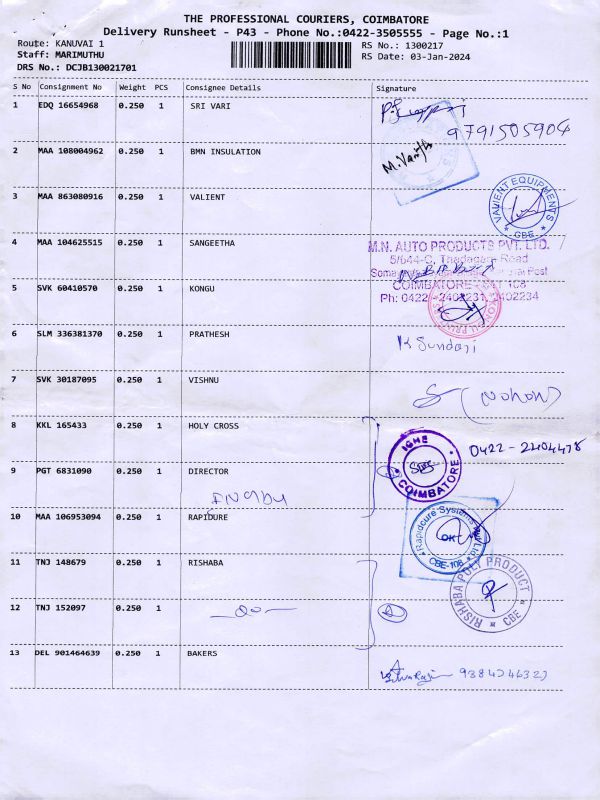 THE PROFESSIONAL COURIERS, COIMBATORE
Delivery Runsheet - P43 - Phone No.:0422-3505555 - Page No.:1
Route: KANUVAI 1
Staff: MARIMUTHU
DRS No.: DCJB130021701
RS No.: 1300217
RS Date: 03-Jan-2024
S No Consignment No Weight PCS Consignee Details Signature
1 EDQ 16654968 0.250 1 SRI VARI
9791505904
2 MAA 108004962 0.250 1 BMN INSULATION
3 MAA 863080916 0.250 1 VALIENT
VALIENT EQUIPMENTS * CBE *
4 MAA 104625515 0.250 1 SANGEETHA
M.N. AUTO PRODUCTS PVT. LTD.
5/644-C, Thadagam Road
Post
COIMBATORE - 641 108
Ph: 0422 - 2402231, 2402234
5 SVK 60410570 0.250 1 KONGU
6 SLM 336381370 0.250 1 PRATHESH
K Sundari
7 SVK 30187095 0.250 1 VISHNU
8 KKL 165433 0.250 1 HOLY CROSS
COIMBATORE
0422 - 2404478
9 PGT 6831090 0.250 1 DIRECTOR
10 MAA 106953094 0.250 1 RAPIDURE
Rapidcure Systems Pvt Ltd
OK
CBE-108
11 TNJ 148679 0.250 1 RISHABA
RISHABA POLY PRODUCT * CBE *
12 TNJ 152097 0.250 1
13 DEL 901464639 0.250 1 BAKERS